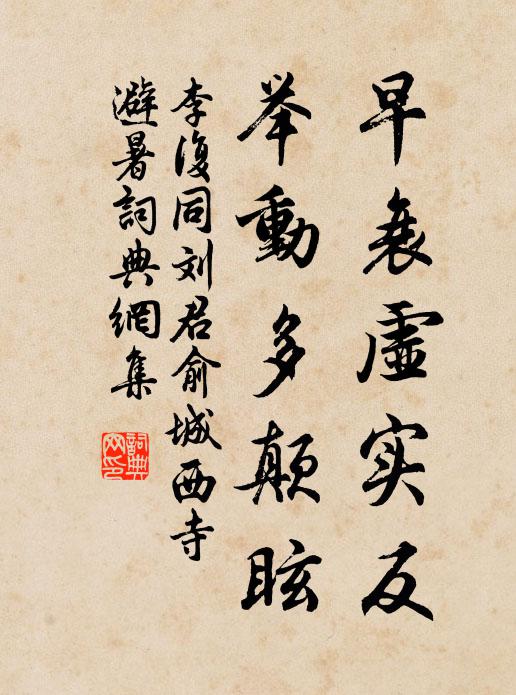 早衰虚实反
举動多颠眩
李復同刘君俞城西寺
避暑詞典網集
詞典
网印